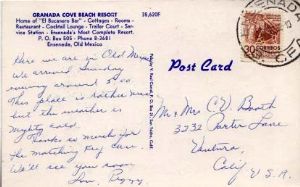 GRANADA COVE BEACH RESORT
Home of "El Bucanero Bar" - Cottages - Rooms -
Restaurant - Cocktail Lounge - Trailer Court - Ser-
vice Station - Ensenada's Most Complete Resort.
P. O. Box 505 - Phone 8-3681
Ensenada, Old Mexico
38,620F
ENSENADA
CORREOS
30
Post Card
Here we are in Old Mexico
We arrived Sunday
evening around 5:00
This place is rather nice
but the weather is
mighty cold.
Thanks so much for
the matching Key Case.
We'll see you soon
Love, Peggy
Mr & Mrs C V Booth
3232 Porter Lane
Ventura,
Calif
U.S.A.